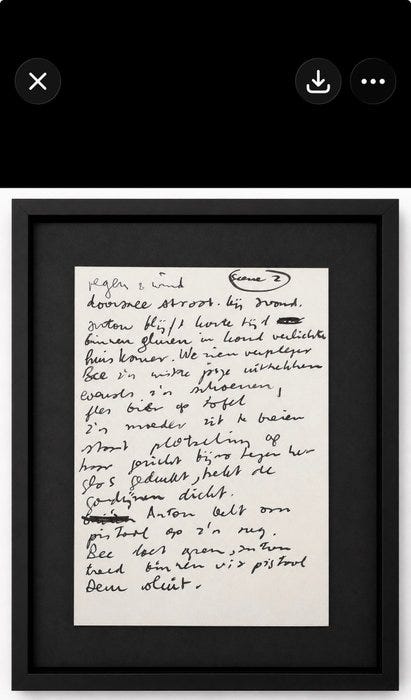 regen & wind
scene 2
doorsnee straat. bij avond.
Anton blijft korte tijd
binnen gluren in hond verlichte
huiskamer. We zien verpleger
Bee z'n witte jasje uittrekken
evenals z'n schoenen,
fles bier op tafel
z'n moeder zit te breien
staat plotseling op
haar gezicht bijna tegen het
glas gedrukt, trekt de
gordijnen dicht.
Anton belt om
pistool op z'n rug.
Bee doet open, Anton
treed binnen via pistool
Deur sluit.